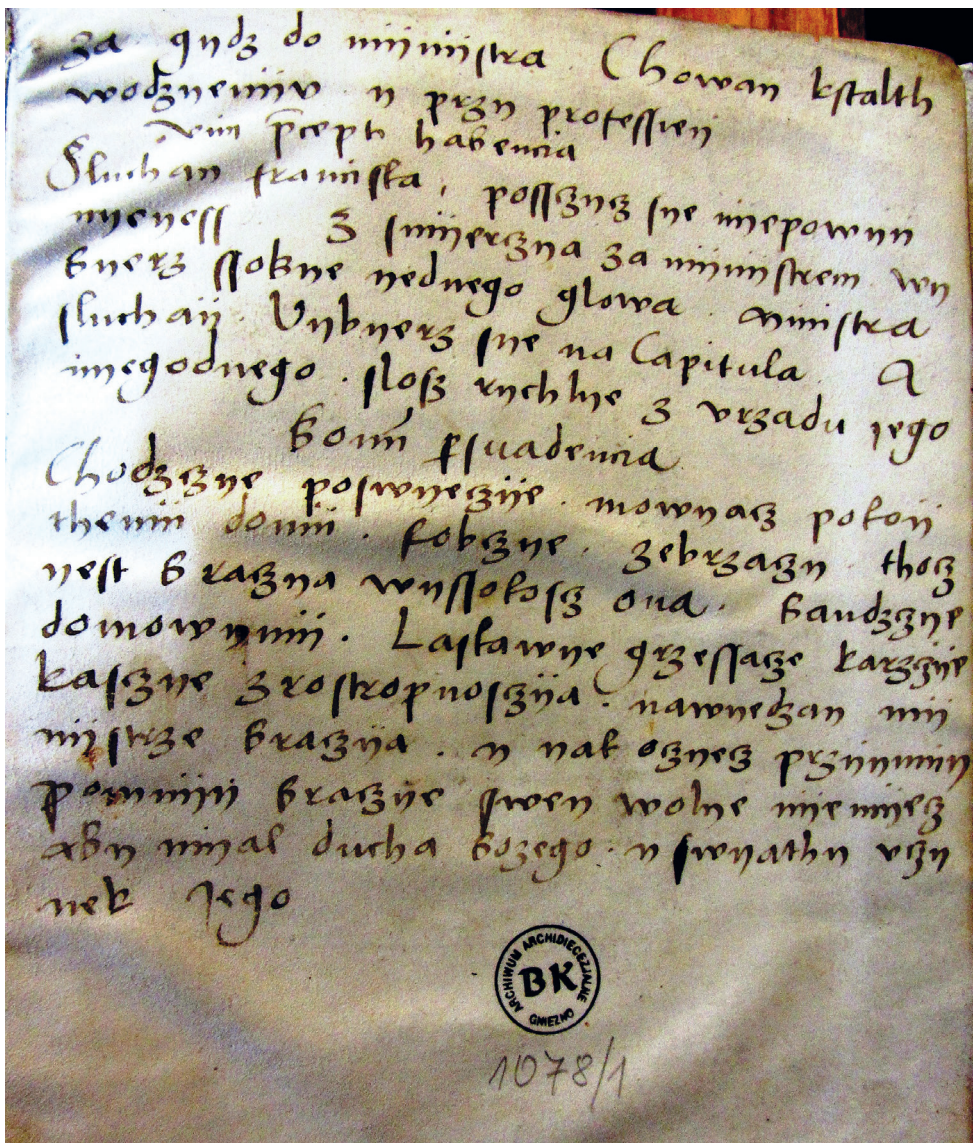 za gydz do ministra. Chowan kstalth
wodzyeniiv. y przy professiey
vim p̄cepti habencia
Sluchay franciska, posszyes sye niepowyn
nyeness. Z smijerzyna za ministrem wy
byerz ssobye yednego glowa. ministra
sluchaij. Vybyerz sye na Capitula. A
niegodnego. slosz rychlye z vrzadu yego
bonū p̱suadencia
Chodzzye poswyeczije. mowyacz pokoy
themu domu. kobczye. zebrzaczy. thocz
yest braczya wyssokoscz ona. bandzzye
domowymi. Laskawye grzessacze karzzije
kasczye z rostropnosczija. nawyedzay mi
nijstrze braczija. y yak oczyecz przyimuiy
pomniy braczije swey wolye nie miecz
aby myal ducha bozego. y swyathy vczy
nek Jego
ARCHIWUM ARCHIDIECEZJALNE
BK
GNIEZNO
1078/1